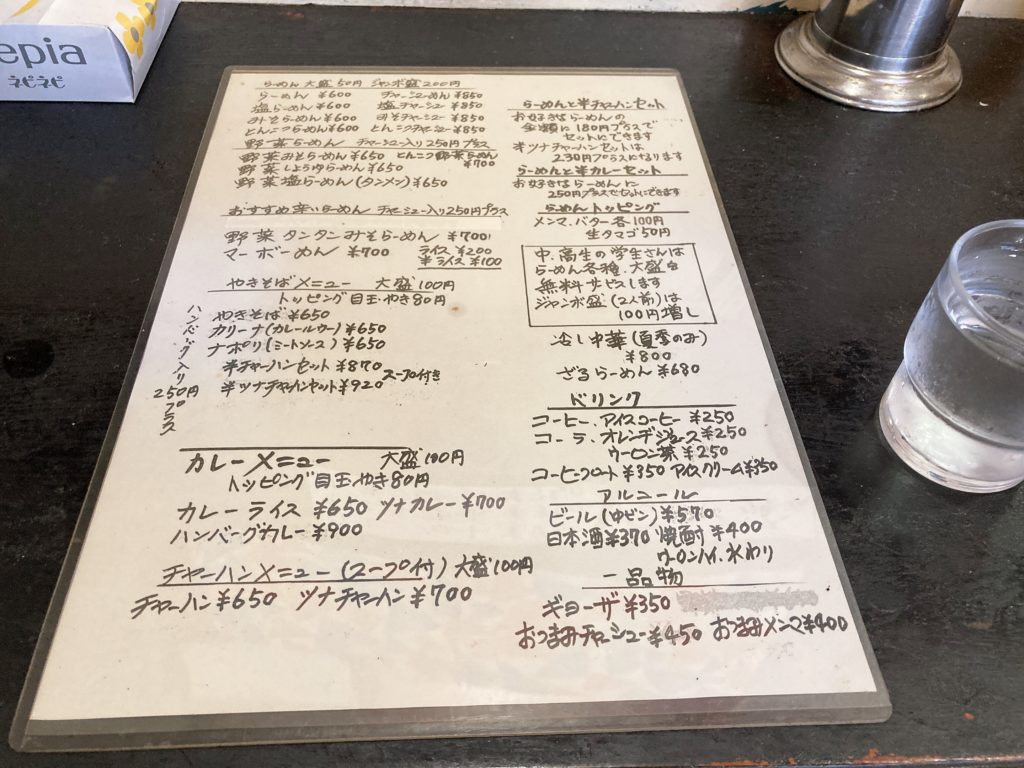 epia
ネピネピ
らーめん 大盛50円 ジャンボ盛200円
らーめん ¥600 チャーシューめん ¥850
塩らーめん ¥600 塩チャーシュー ¥850
みそらーめん ¥600 みそチャーシュー ¥850
とんこつらーめん ¥600 とんこつチャーシュー ¥850
野菜らーめん チャーシュー入り250円プラス
野菜みそらーめん ¥650 とんこつ野菜らーめん ¥700
野菜しょうゆらーめん ¥650
野菜塩らーめん(タンメン) ¥650
おすすめ辛いらーめん チャーシュー入り250円プラス
野菜タンタンみそらーめん ¥700
マーボーめん ¥700 ライス ¥200
半ライス ¥100
やきそばメニュー 大盛100円
トッピング目玉やき80円
やきそば ¥650
カリーナ(カレールウー) ¥650
ナポリ(ミートソース) ¥650
半チャーハンセット ¥870
半ツナチャーハンセット ¥920 スープ付き
ハンバーグ入り250円プラス
カレーメニュー 大盛100円
トッピング目玉やき80円
カレーライス ¥650 ツナカレー ¥700
ハンバーグカレー ¥900
チャーハンメニュー(スープ付) 大盛100円
チャーハン ¥650 ツナチャーハン ¥700
らーめんと半チャーハンセット
お好きならーめんの
金額に180円プラスで
セットにできます
半ツナチャーハンセットは
230円プラスになります
らーめんと半カレーセット
お好きならーめんに
250円プラスでセットにできます
らーめんトッピング
メンマ.バター各100円
生タマゴ50円
中.高生の学生さんは
らーめん各種.大盛を
無料サービスします
ジャンボ盛(2人前)は
100円増し
冷し中華(夏季のみ)
¥800
ざるらーめん ¥680
ドリンク
コーヒー.アイスコーヒー ¥250
コーラ.オレンヂジュース ¥250
ウーロン茶 ¥250
コーヒーフロート ¥350 アイスクリーム ¥350
アルコール
ビール(中ビン) ¥570
日本酒 ¥370 焼酎 ¥400
ウーロンハイ.水わり
一品物
ギョーザ ¥350
おつまみチャーシュー ¥450 おつまみメンマ ¥400